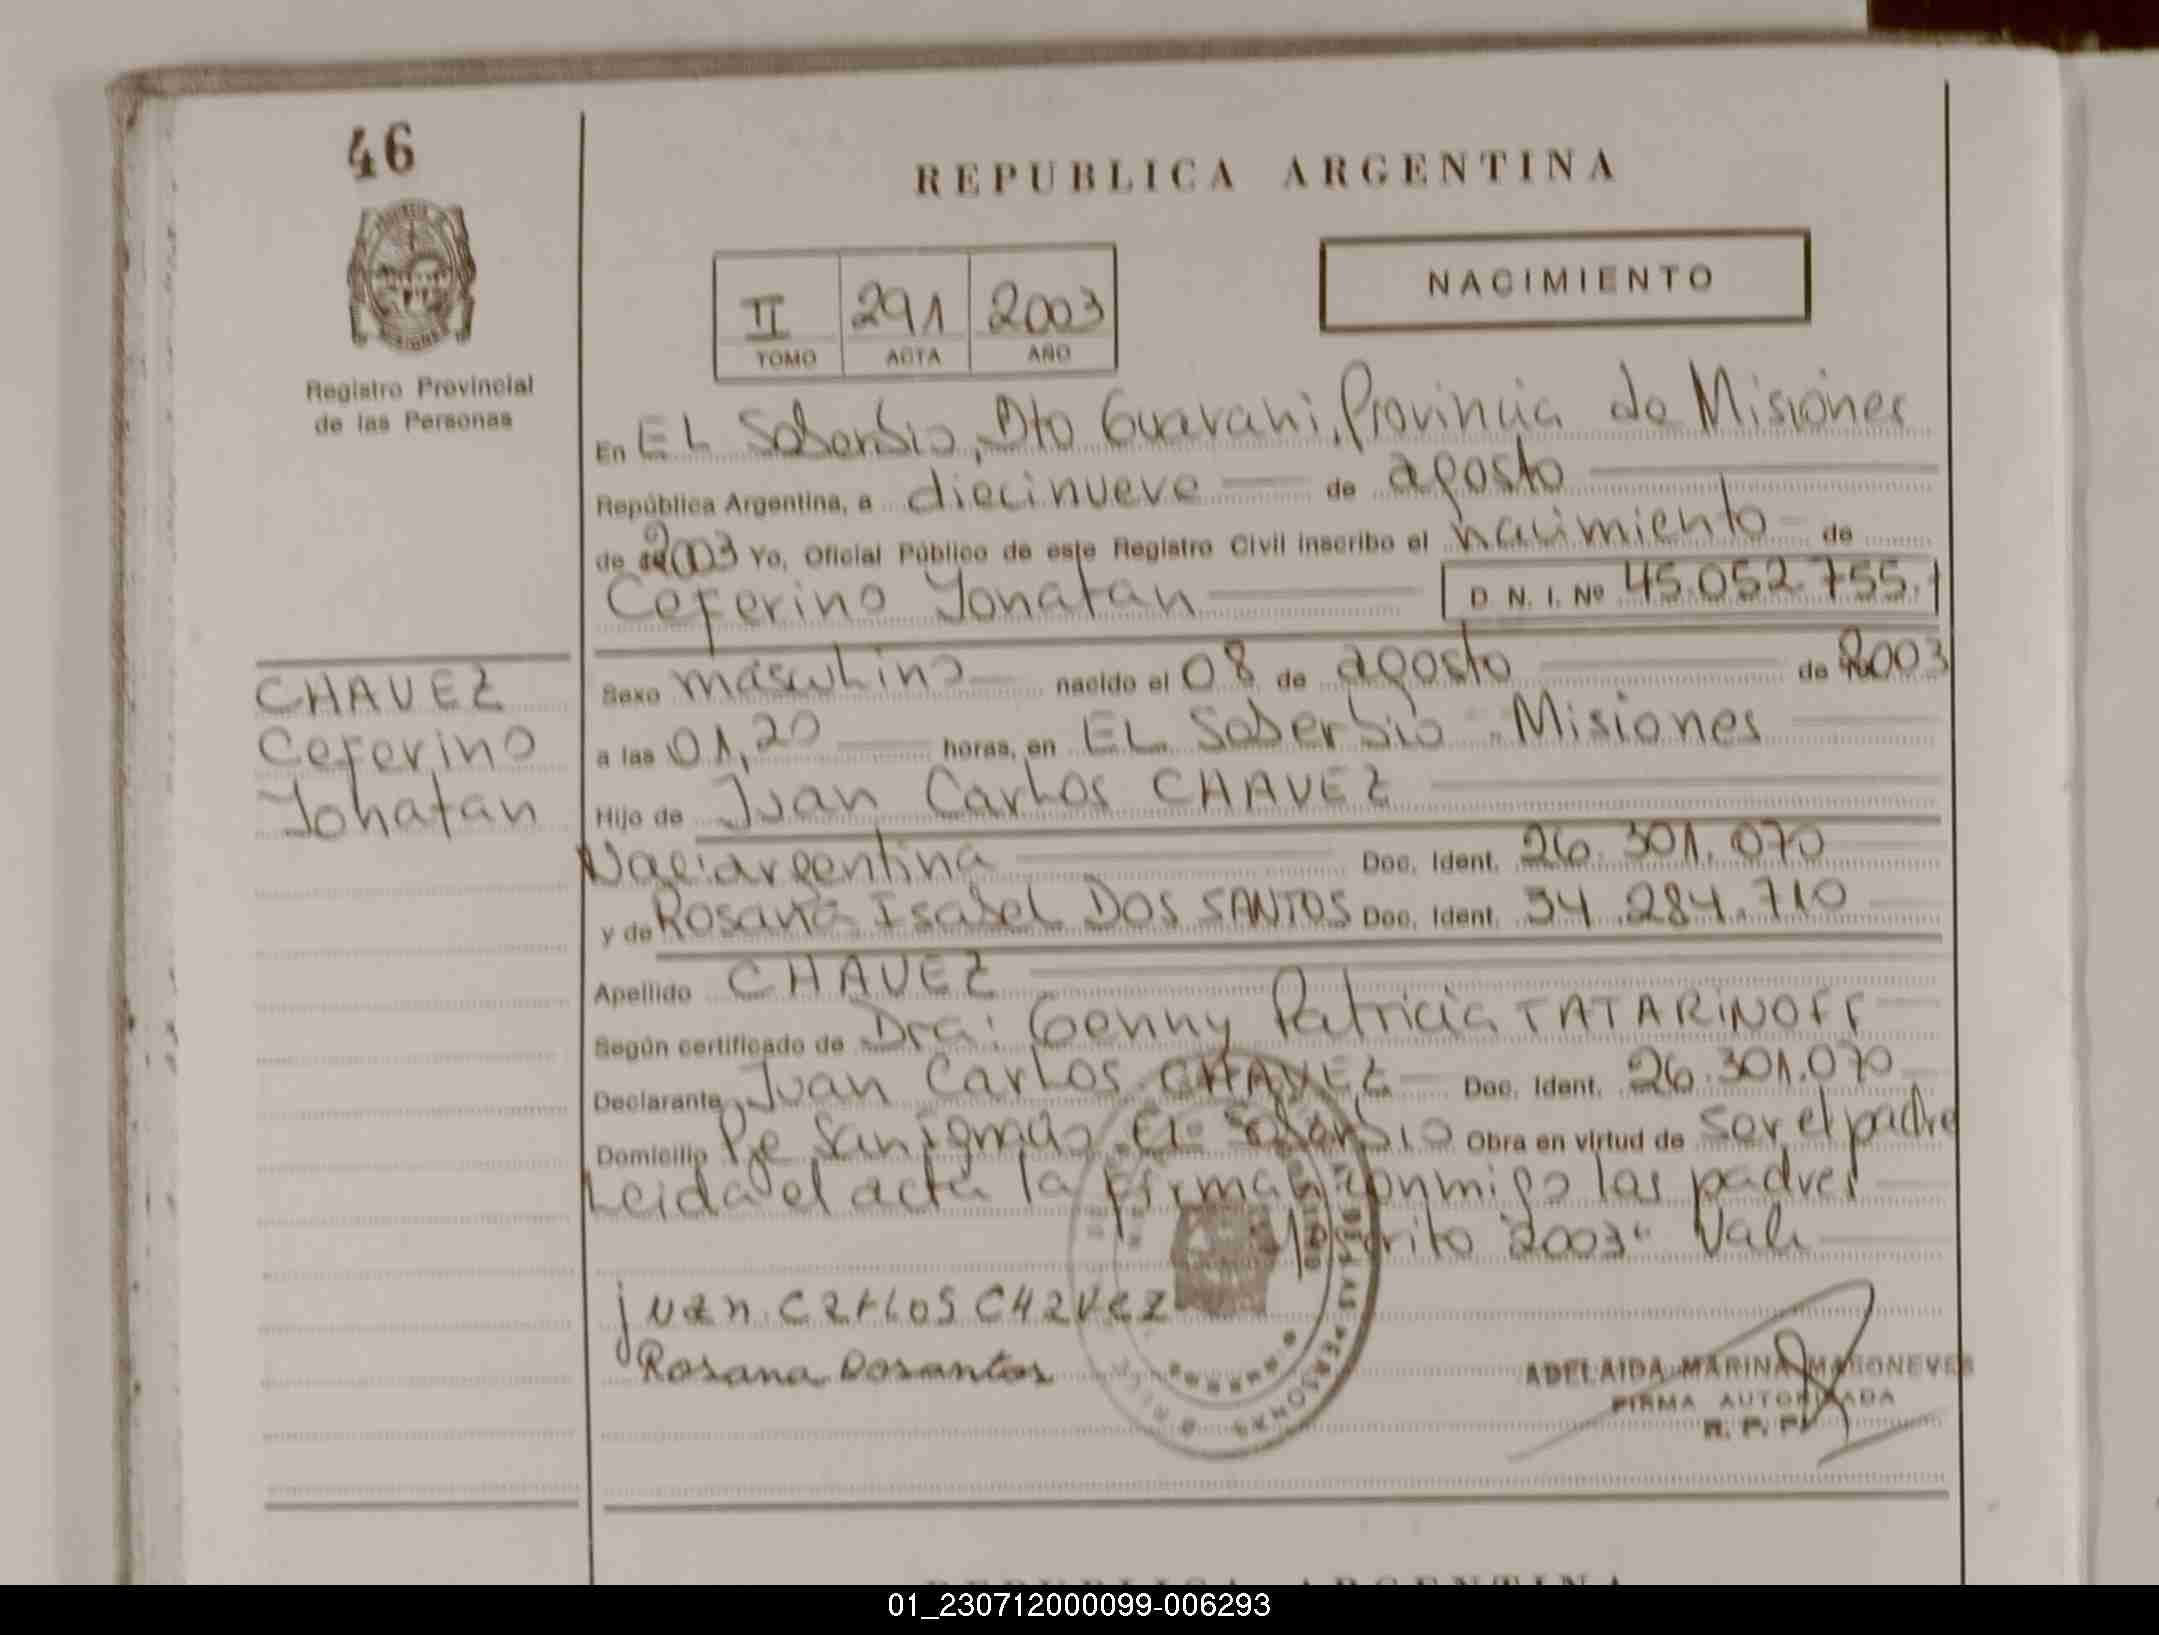 46
REPUBLICA ARGENTINA
NACIMIENTO
II 291 2003
TOMO ACTA AÑO
Registro Provincial
de las Personas
En EL Soberbio, Dto Guarani, Provincia de Misiones
República Argentina, a diecinueve de agosto
de 2003 Yo, Oficial Público de este Registro Civil inscribo el nacimiento de
Ceferino Yonatan D. N. I. Nº 45.052.755.
CHAVEZ
Ceferino
Yonatan
Sexo masculino nacido el 08 de agosto de 2003
a las 01,20 horas, en EL Soberbio Misiones
Hijo de Juan Carlos CHAVEZ
Nac: argentina Doc. Ident. 26.301.070
y de Rosana Isabel DOS SANTOS Doc. Ident. 34.284.710
Apellido CHAVEZ
Según certificado de Dra: Genny Patricia TATARINOFF
Declarante Juan Carlos CHAVEZ Doc. Ident. 26.301.070
Domicilio Pje San Ignacio, EL Soberbio Obra en virtud de ser el padre
Leida el acta la firman conmigo los padres
2003" Vale
juan carlos chavez
Rosana Dosantos
ADELAIDA MARINA
FIRMA AUTORIZADA
R. P. P.
PERSONAS
REPUBLICA ARGENTINA
01_230712000099-006293